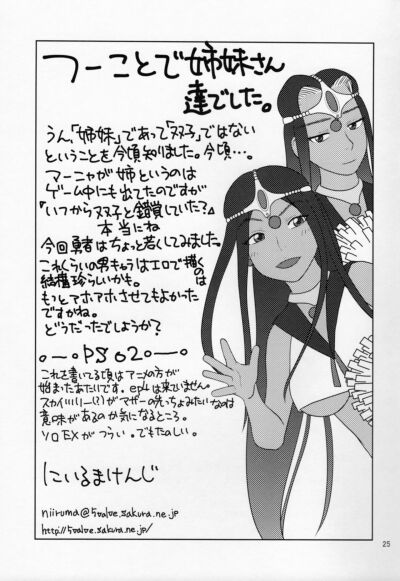 つーことで姉妹さん
達でした。
うん、「姉妹」であって「双子」ではない
ということを今頃知りました。今頃…。
マーニャが姉というのは
ゲーム中にも出てたのですが
「いつから双子と錯覚していた?」
本当にね
今回勇者はちょっと若くしてみました。
これくらいの男キャラはエロで描くのは
結構珍しいかも。
もっとアホアホさせてもよかった
ですかね。
どうだったでしょうか?
PSO2
これを書いてる頃はアニメの方が
始まったあたいです。ep4は来ていません。
がマザーの先っちょみたいなのは
意味があるのか気になるところ。
ソロEXがつらい。でもたのしい。
にいるまけんじ
niiruma@5value.sakura.ne.jp
http://5value.sakura.ne.jp/
25